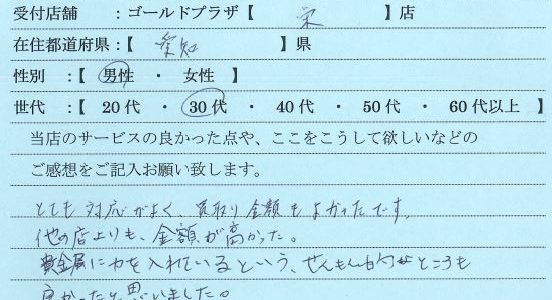 受付店舗 ：ゴールドプラザ【 栄 】店
在住都道府県：【 愛知 】県
性別 ：【 男性 ・ 女性 】
世代 ：【 20代 ・ 30代 ・ 40代 ・ 50代 ・ 60代以上 】
当店のサービスの良かった点や、ここをこうして欲しいなどの
ご感想をご記入お願い致します。
とても対応がよく、買取り金額もよかったです。
他の店よりも、金額が高かった。
貴金属に力を入れているという、せんもん的なところも
良かったと思いました。